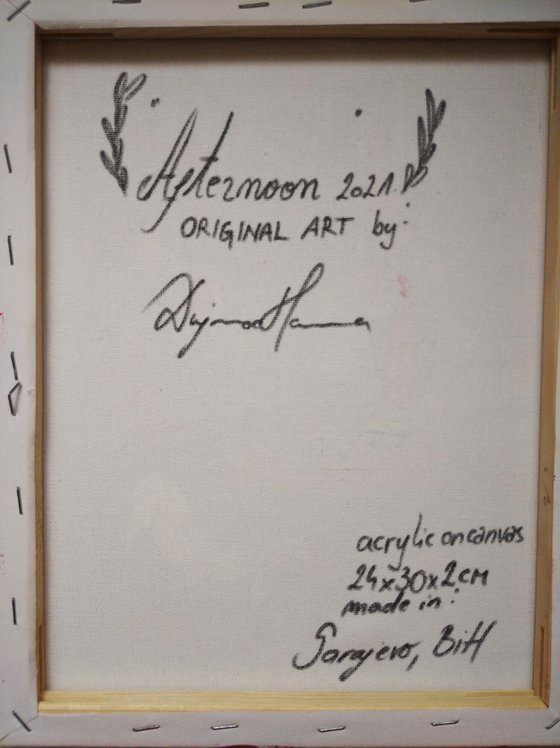 Afternoon 2021.
ORIGINAL ART by:
acrylic on canvas
24x30x2cm
made in:
Sarajevo, BiH